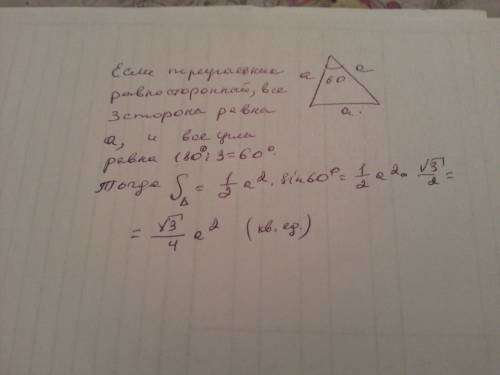 Если треугольник
равносторонний, все
3 сторона равна
a, и все углы
равна 180°:3=60°.
Тогда S△ = 1/2 a². sin60° = 1/2 a². √3/2 =
= √3/4 a² (кв. ед.)
a 60 a
a.